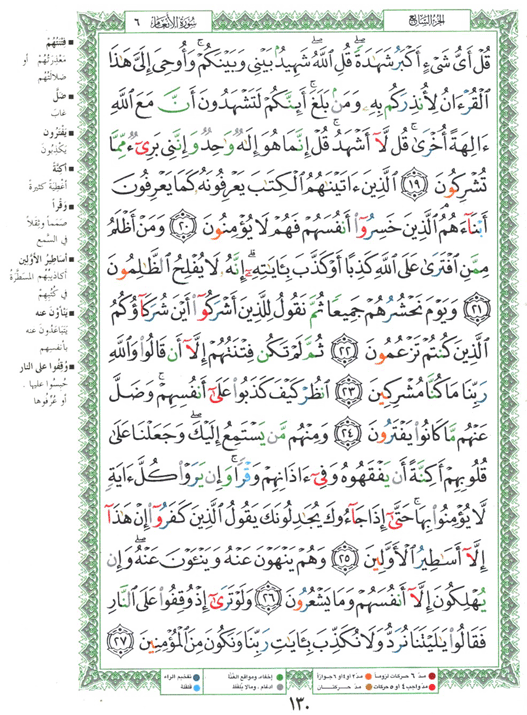 الجزء السابع
سورة الأنعام ٦
قُلْ أَىُّ شَىْءٍ أَكْبَرُ شَهَٰدَةً ۖ قُلِ ٱللَّهُ ۖ شَهِيدٌۢ بَيْنِى وَبَيْنَكُمْ ۚ وَأُوحِىَ إِلَىَّ هَٰذَا
ٱلْقُرْءَانُ لِأُنذِرَكُم بِهِۦ وَمَنۢ بَلَغَ ۚ أَئِنَّكُمْ لَتَشْهَدُونَ أَنَّ مَعَ ٱللَّهِ
ءَالِهَةً أُخْرَىٰ ۚ قُل لَّآ أَشْهَدُ ۚ قُلْ إِنَّمَا هُوَ إِلَٰهٌ وَٰحِدٌ وَإِنَّنِى بَرِىٓءٌ مِّمَّا
تُشْرِكُونَ ١٩ ٱلَّذِينَ ءَاتَيْنَٰهُمُ ٱلْكِتَٰبَ يَعْرِفُونَهُۥ كَمَا يَعْرِفُونَ
أَبْنَآءَهُمُ ۘ ٱلَّذِينَ خَسِرُوٓا۟ أَنفُسَهُمْ فَهُمْ لَا يُؤْمِنُونَ ٢٠ وَمَنْ أَظْلَمُ
مِمَّنِ ٱفْتَرَىٰ عَلَى ٱللَّهِ كَذِبًا أَوْ كَذَّبَ بِـَٔايَٰتِهِۦٓ ۗ إِنَّهُۥ لَا يُفْلِحُ ٱلظَّٰلِمُونَ
٢١ وَيَوْمَ نَحْشُرُهُمْ جَمِيعًا ثُمَّ نَقُولُ لِلَّذِينَ أَشْرَكُوٓا۟ أَيْنَ شُرَكَآؤُكُمُ
ٱلَّذِينَ كُنتُمْ تَزْعُمُونَ ٢٢ ثُمَّ لَمْ تَكُن فِتْنَتُهُمْ إِلَّآ أَن قَالُوا۟ وَٱللَّهِ
رَبِّنَا مَا كُنَّا مُشْرِكِينَ ٢٣ ٱنظُرْ كَيْفَ كَذَبُوا۟ عَلَىٰٓ أَنفُسِهِمْ ۚ وَضَلَّ
عَنْهُم مَّا كَانُوا۟ يَفْتَرُونَ ٢٤ وَمِنْهُم مَّن يَسْتَمِعُ إِلَيْكَ ۖ وَجَعَلْنَا عَلَىٰ
قُلُوبِهِمْ أَكِنَّةً أَن يَفْقَهُوهُ وَفِىٓ ءَاذَانِهِمْ وَقْرًا ۚ وَإِن يَرَوْا۟ كُلَّ ءَايَةٍ
لَّا يُؤْمِنُوا۟ بِهَا ۚ حَتَّىٰٓ إِذَا جَآءُوكَ يُجَٰدِلُونَكَ يَقُولُ ٱلَّذِينَ كَفَرُوٓا۟ إِنْ هَٰذَآ
إِلَّآ أَسَٰطِيرُ ٱلْأَوَّلِينَ ٢٥ وَهُمْ يَنْهَوْنَ عَنْهُ وَيَنْـَٔوْنَ عَنْهُ ۖ وَإِن
يُهْلِكُونَ إِلَّآ أَنفُسَهُمْ وَمَا يَشْعُرُونَ ٢٦ وَلَوْ تَرَىٰٓ إِذْ وُقِفُوا۟ عَلَى ٱلنَّارِ
فَقَالُوا۟ يَٰلَيْتَنَا نُرَدُّ وَلَا نُكَذِّبَ بِـَٔايَٰتِ رَبِّنَا وَنَكُونَ مِنَ ٱلْمُؤْمِنِينَ ٢٧
■ فِتْنَتُهُمْ
مَعْذِرَتُهُمْ أو
ضلالتُهُم
■ ضَلَّ
غابَ
■ يَفْتَرُون
يَكْذِبُونَ
■ أكِنَّةً
أغْطِيَةً كثيرةً
■ وَقْراً
صَمَماً وثِقَلاً
في السَّمع
■ أساطيرُ الأوّلين
أكاذيبُهم المسَطَّرَةُ
في كُتُبِهِم
■ يَنْأَوْنَ عنه
يتباعَدُون عنه
بأنفسِهم
■ وُقِفُوا على النار
حُبِسوا عليها
أو عُرِّفوها
مدّ ٦ حركات لزوماً
مدّ ٢ او ٤ او ٦ جوازاً
مدّ واجب ٤ او ٥ حركات
مدّ حركتان
إخفاء، ومواقع الغُنَّة
ادغام، ومالا يُلفَظ
تفخيم الراء
قلقلة
١٣٠